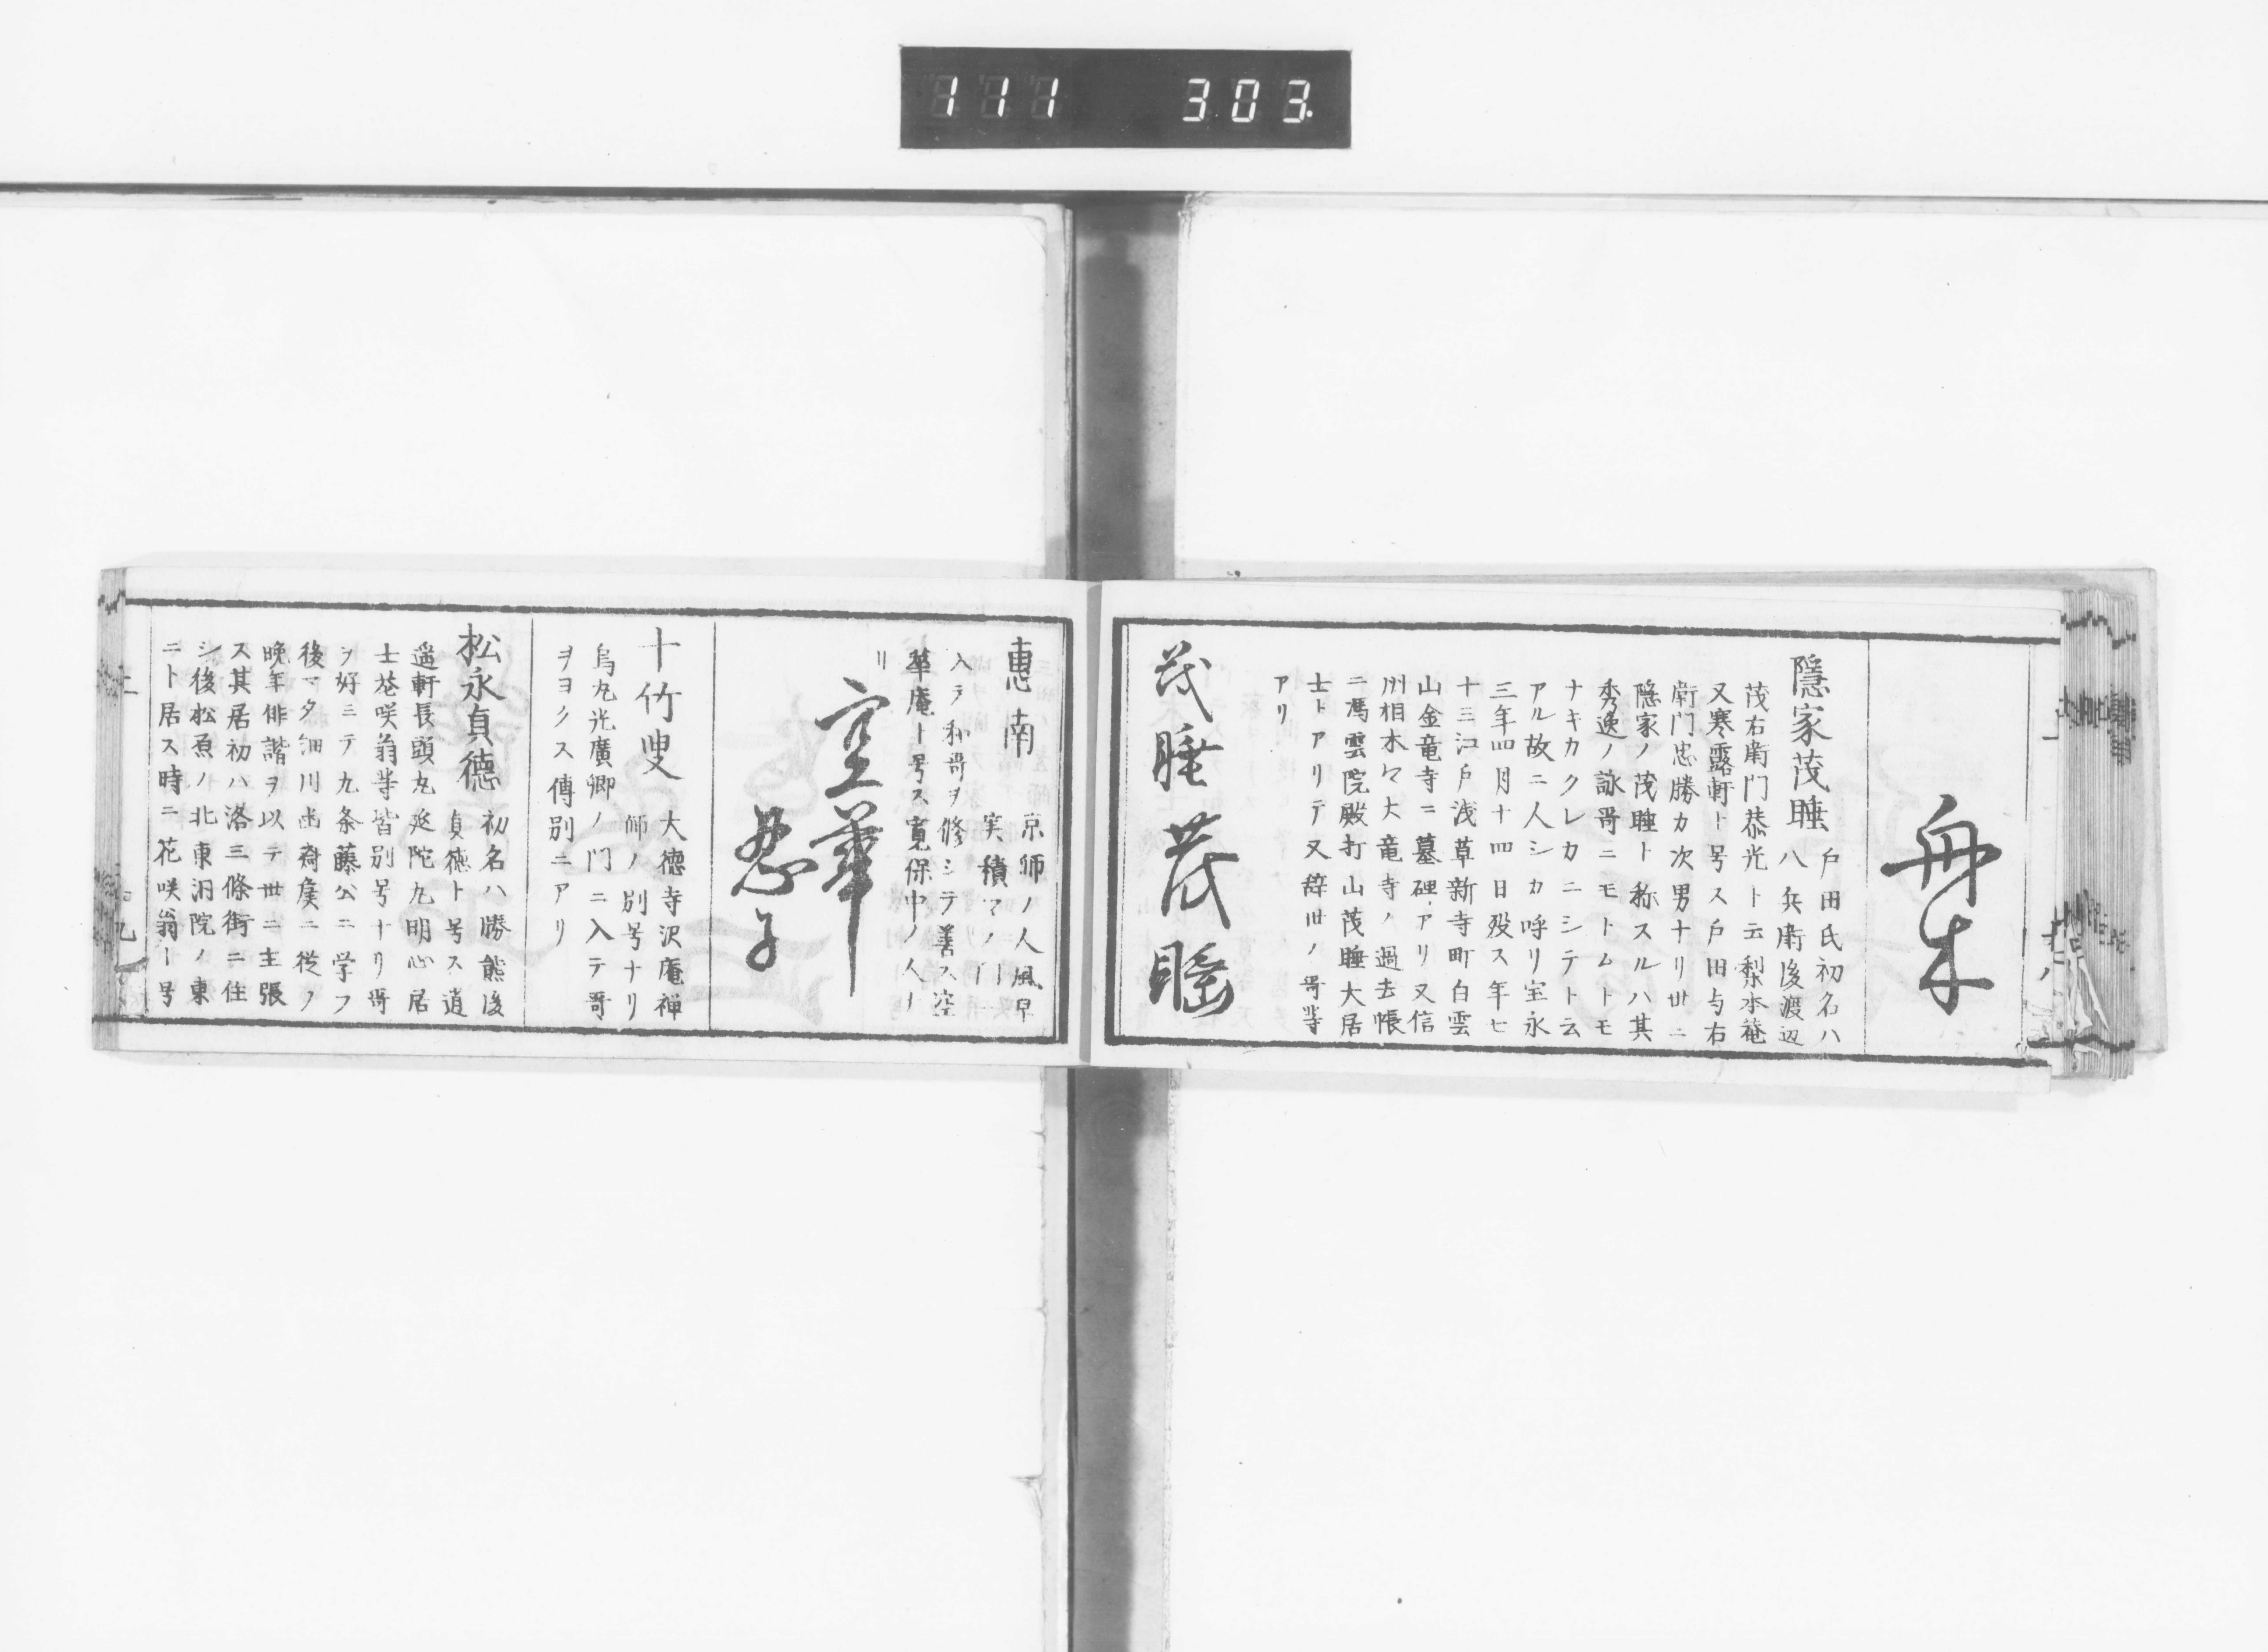 111 303.
舟木
隠家茂睡 戸田氏初名ハ
八兵衛後渡辺
茂右衛門恭光ト云梨本菴
又寒露軒ト号ス戸田与右
衛門忠勝カ次男ナリ世ニ
隠家ノ茂睡ト称スルハ其
秀逸ノ詠哥ニモトムトモ
ナキカクレカニシテト云
アル故ニ人シカ呼リ宝永
三年四月十四日殁ス年七
十三江戸浅草新寺町白雲
山金竜寺ニ墓碑アリ又信
州相木大竜寺ノ過去帳
ニ馮雲院殿打山茂睡大居
士トアリテ又辞世ノ哥等
アリ
茂睡 茂睡
惠南 京師ノ人風早
実積マノ門
入テ和哥ヲ修シテ善ス空
華庵ト号ス寛保中ノ人
リ
空華
忍子
十竹叟 大徳寺沢庵禅
師ノ別号ナリ
烏丸光廣卿ノ門ニ入テ哥
ヲヨクス傳別ニアリ
松永貞徳 初名ハ勝熊後
貞徳ト号ス逍
遥軒長頭丸延陀丸明心居
士花咲翁等皆別号ナリ哥
ヲ好ミテ九条藤公ニ学フ
後マタ細川幽斎矦ニ従ノ
晩年俳諧ヲ以テ世ニ主張
ス其居初ハ洛三條街ニ住
シ後松原ノ北東洞院ノ東
ニト居ス時ニ花咲翁ト号